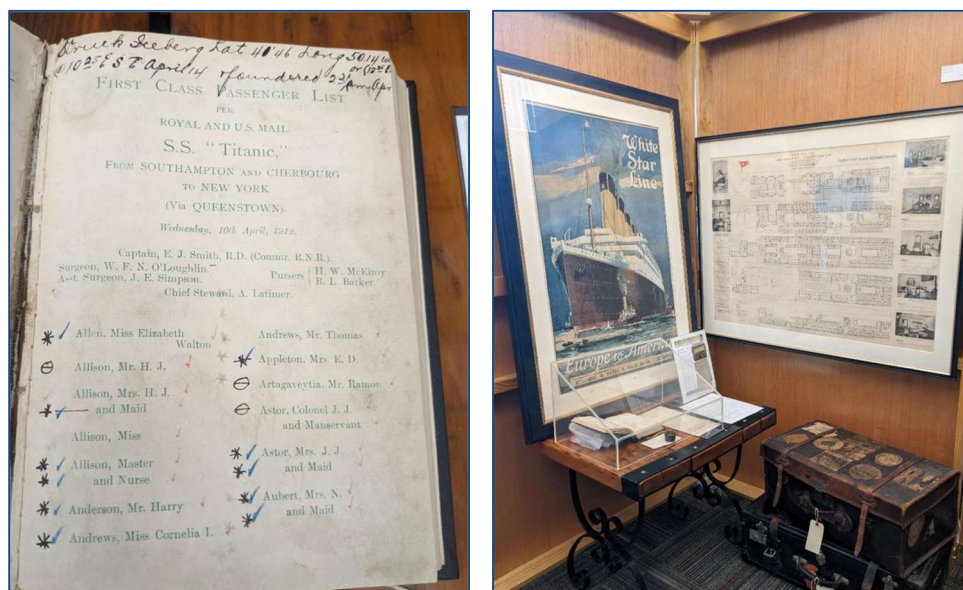 Struck Iceberg Lat 41°46 Long 50.14
10 25 E S T April 14 & foundered 2
FIRST CLASS PASSENGER LIST
PER
ROYAL AND U.S. MAIL
S.S. "Titanic,"
FROM SOUTHAMPTON AND CHERBOURG
TO NEW YORK
(Via QUEENSTOWN).
Wednesday, 10th April, 1912.
Captain, E. J. Smith, R.D. (Commr. R.N.R.).
Surgeon, W. F. N. O'Loughlin.
Asst. Surgeon, J. E. Simpson.
Pursers
H. W. McElroy
R. L. Barker.
Chief Steward, A. Latimer.
Allen, Miss Elizabeth
Walton
Allison, Mr. H. J.
Allison, Mrs. H. J.
and Maid
Allison, Miss
Allison, Master
and Nurse
Anderson, Mr. Harry
Andrews, Miss Cornelia I.
Andrews, Mr. Thomas
Appleton, Mrs. E. D.
Artagaveytia, Mr. Ramon
Astor, Colonel J. J.
and Manservant
Astor, Mrs. J. J.
and Maid
Aubert, Mrs. N.
and Maid
White
Star
Line
Europe to America